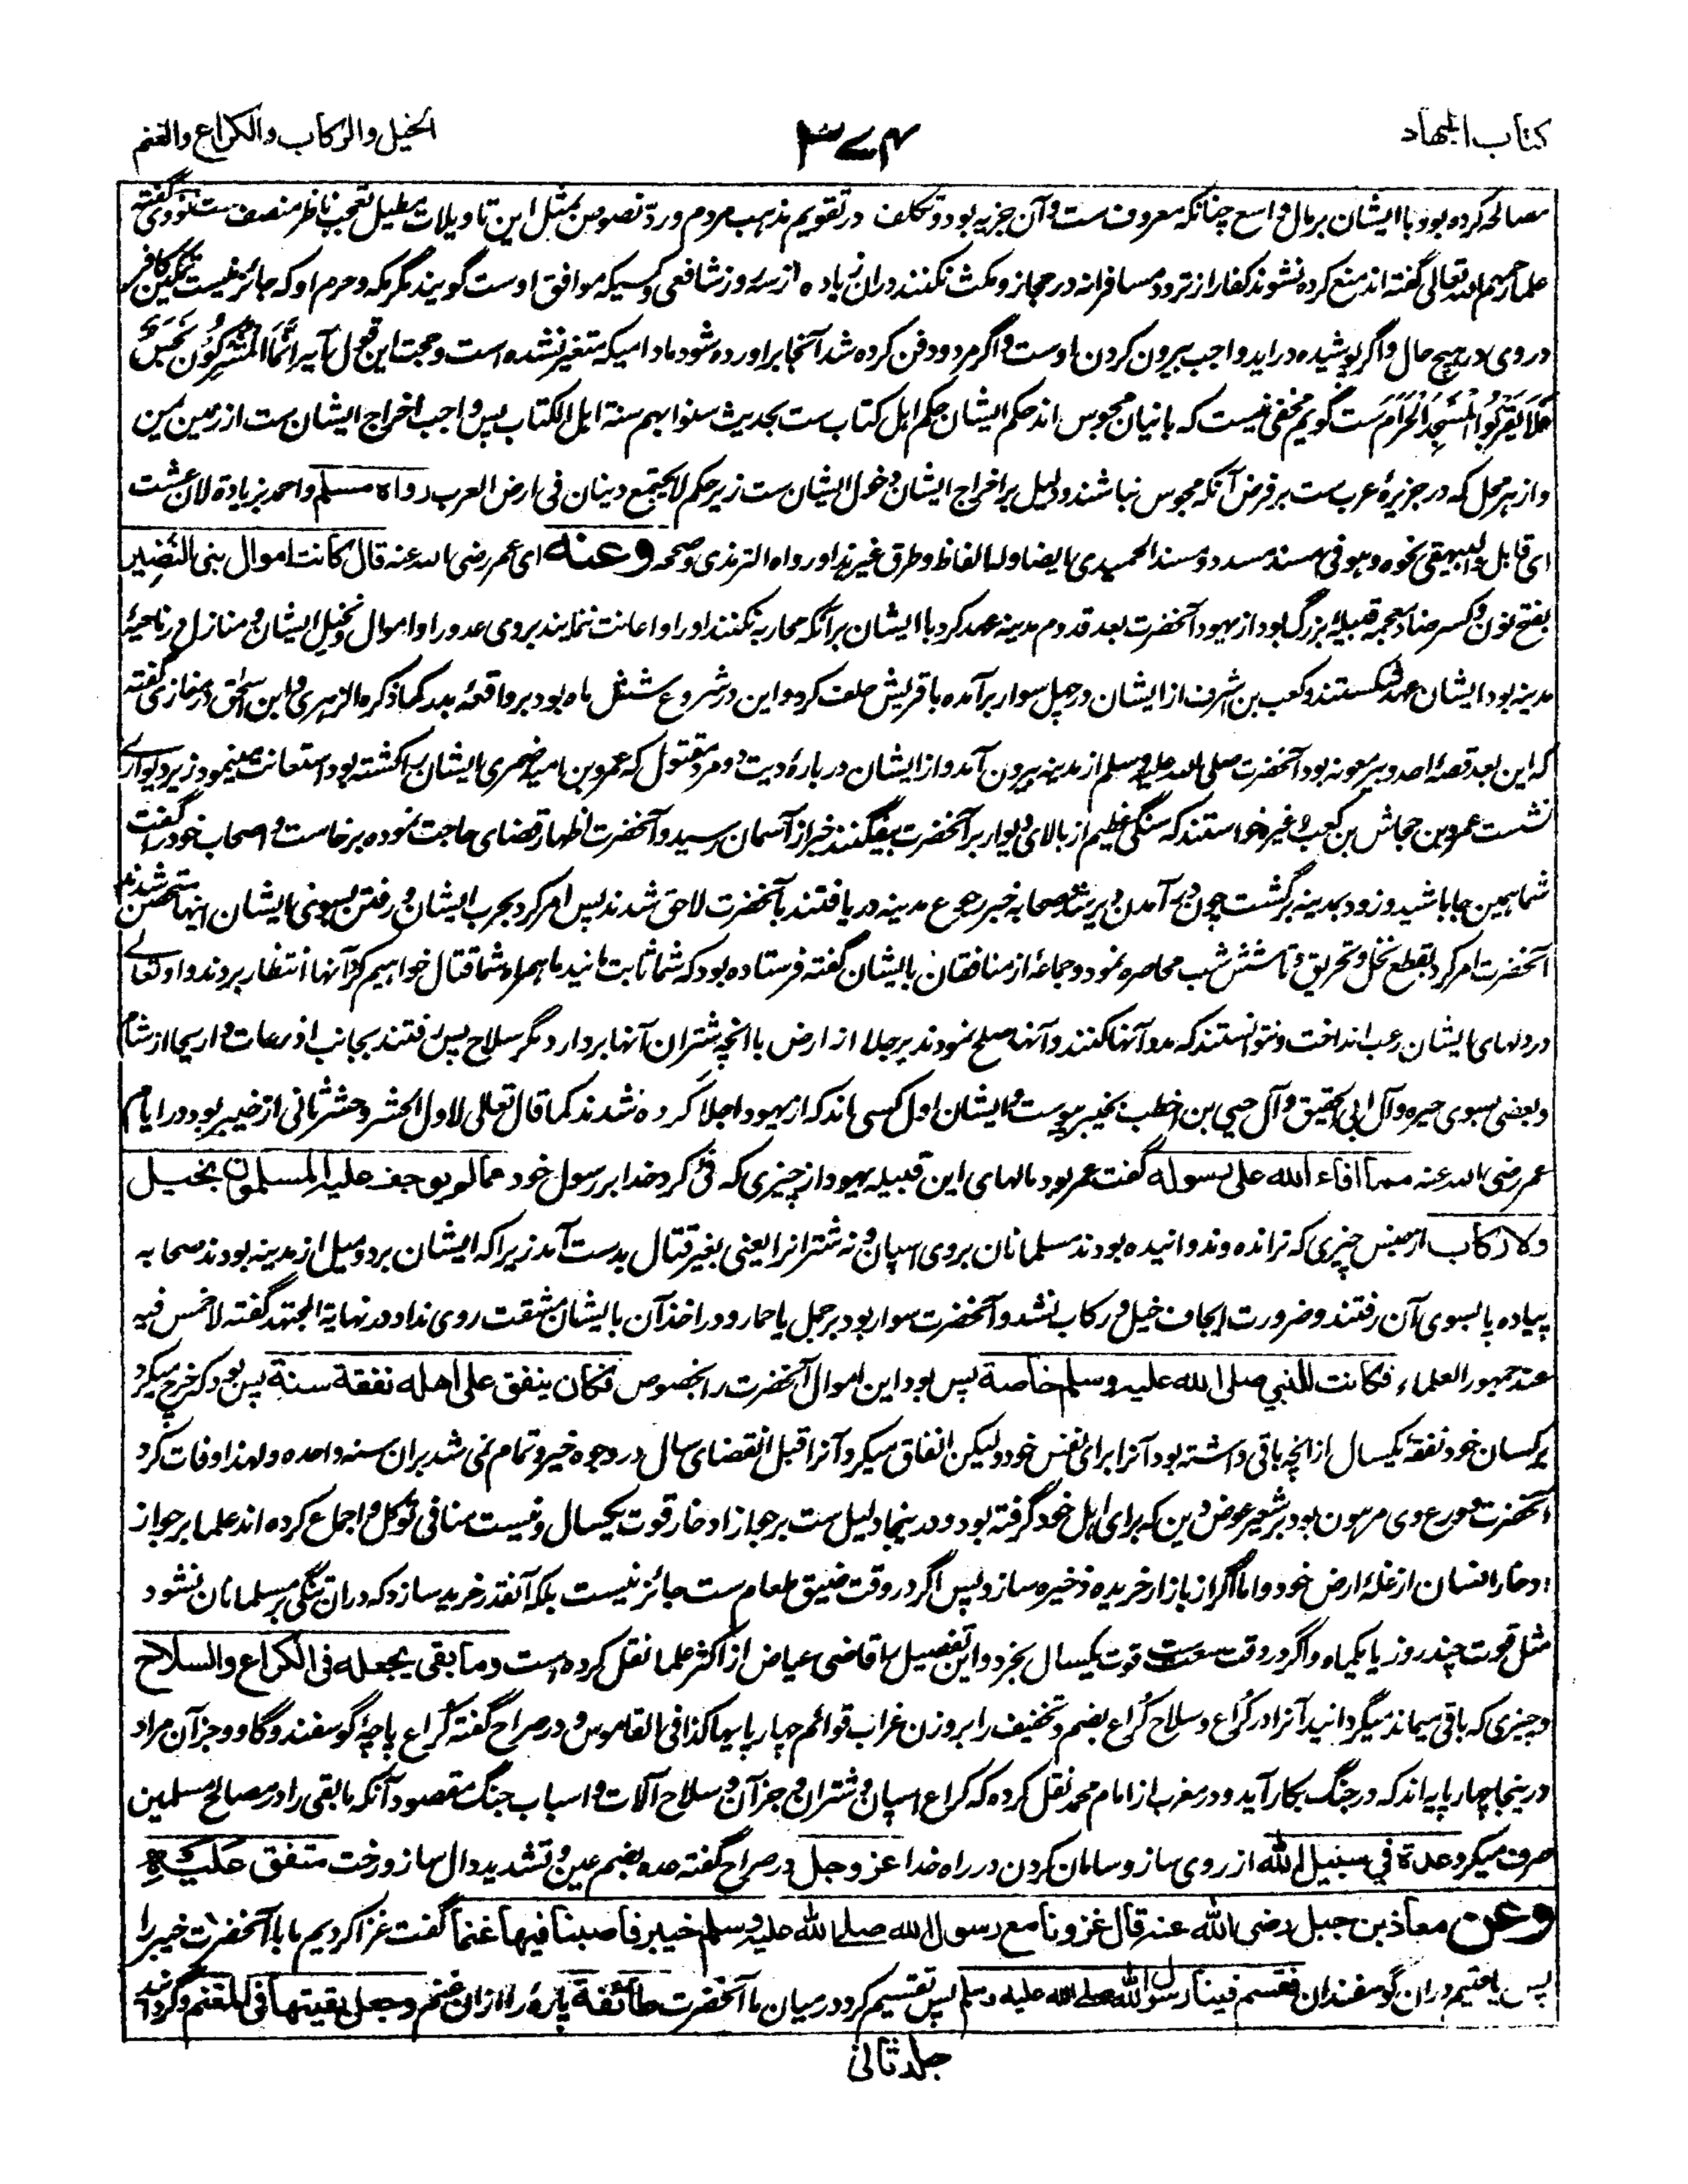 کتاب الجهاد
۳۷۴
الخیل والرکاب والکراع والغنم
مصالحه کرده بود با ایشان بر مال واسع چنانکه معروف ست و آن جزیه بود و تکلف در تقویم مذهب مردم و ردّ نصوص بمثل این تاویلات مطیل تعجب ناظر منصف ست نووی گفته
علما رحمهم الله تعالی گفته اند منع کرده نشوند کفار از تردد مسافرانه در حجاز و مکث نکنند دران زیاده از سه روز شافعی و کسیکه موافق اوست گویند مگر مکه و حرم او که جائز نیست تمکین کافر
در وی در هیچ حال و اگر پوشیده در اید واجب بیرون کردن اوست و اگر مرد و دفن کرده شد آنجا براورده شود مادامیکه متغیر نشده است و حجت این قول آیه اِنَّمَا الْمُشْرِکُوْنَ نَجَسٌ
فَلَا یَقْرَبُوا الْمَسْجِدَ الْحَرَامَ ست گویم مخفی نیست که بانیان مجوس اند حکم ایشان حکم اهل کتاب ست بحدیث سنوا بهم سنة اهل الکتاب پس واجب اخراج ایشان ست از زمین یمن
و از هر محل که در جزیرهٔ عرب ست بر فرض آنکه مجوس نباشند و دلیل بر اخراج ایشان دخول ایشان ست زیر حکم لا یجتمع دینان فی ارض العرب رواه مسلم و احمد بزیادة لان عشت
ای قابل والبیهقی نحوه و هو فی مسند مسدد و مسند الحمیدی ایضا ولها الفاظ و طرق غیر هذا ورواه الترمذی وصححه وعنه ای عمر رضی الله عنه قال کانت اموال بنی النضیر
بفتح نون و کسر ضاد معجمه قبیلهٔ بزرگ بود از یهود آنحضرت بعد قدوم مدینه عهد کرد با ایشان بر آنکه محاربه نکنند او را و اعانت ننمایند بروی عدو را و اموال و نخیل ایشان و منازل در ناحیهٔ
مدینه بود ایشان عهد شکستند و کعب بن اشرف از ایشان در چهل سوار برآمده با قریش حلف کرد و این در شروع شش ماه بود بر واقعهٔ بدر کما ذکره الزهری و ابن اسحٰق در مغازی گفته
که این بعد قصهٔ احد و بیر معونه بود آنحضرت صلی الله علیه وسلم از مدینه بیرون آمد و از ایشان دربارهٔ دیت دو مرد مقتول که عمرو بن امیه ضمری ایشان را کشته بود استعانت مینمود زیر دیواری
نشست عمرو بن جحاش بن کعب و غیره خواستند که سنگی عظیم از بالای دیوار بر آنحضرت بیفگنند خبر از آسمان رسید و آنحضرت اظهار قضای حاجت نموده برخاست و اصحاب خود را گفت
شما همین جا باشید و زود بمدینه برگشت چون بر آمدن دیر شد صحابه خبر رجوع مدینه دریافتند بآنحضرت لاحق شدند پس امر کرد بحرب ایشان و رفتن بسوی ایشان اینها متحصن شدند
آنحضرت امر کرد بقطع نخل و تحریق و تا شش شب محاصره نمود و جماعهٔ از منافقان بایشان گفته فرستاده بود که شما ثابت مانید ما همراه شما قتال خواهیم کرد آنها انتظار بردند و اوتعالی
در دلهای ایشان رعب انداخت و نتوانستند که مدد آنها کنند و آنها صلح نمودند بر جلا از ارض با آنچه شتران آنها بردارد مگر سلاح پس رفتند بجانب اذرعات و اریحا از شام
و بعضی بسوی حیره و آل ابی الحقیق و آل حیی بن اخطب بخیبر پیوست و ایشان اول کسی اند که از یهود اجلا کرده شدند کما قال تعالی لاول الحشر و حشر ثانی از خیبر بود در ایام
عمر رضی الله عنه مما افاء الله علی رسوله گفت عمر بود مالهای این قبیله یهود از چیزی که فئ کرد خدا بر رسول خود مما لم یوجف علیه المسلمون بخیل
ولا رکاب از جنس چیزی که نرانده و ندوانیده بودند مسلمانان بروی اسپان و نه شترانرا یعنی بغیر قتال بدست آمد زیرا که ایشان بر دو میل از مدینه بودند صحابه
پیاده پا بسوی آن رفتند و ضرورت ایجاف خیل و رکاب نشد و آنحضرت سوار بود بر جمل یا حمار و در اخذ آن بایشان مشقت روی نداد در نهایة المجتهد گفته لا خمس فیه
عند جمهور العلماء فکانت للنبی صلی الله علیه وسلم خاصة پس بود این اموال آنحضرت را بخصوص فکان ینفق علی اهله نفقة سنة پس بود که خرج میکرد
بر کسان خود نفقهٔ یکسال از آنچه باقی داشته بود آنرا برای نفس خود ولیکن انفاق میکرد آنرا قبل انقضای سال در وجوه خیر و تمام نمی شد بران سنه واحده و لهذا وفات کرد
آنحضرت و درع وی مرهون بود بر شعیر عوض دین که برای اهل خود گرفته بود و درینجا دلیل ست بر جواز ادخار قوت یکسال و نیست منافی توکل و اجماع کرده اند علما بر جواز
ادخار انسان از غلهٔ ارض خود و اما اگر از بازار خریده ذخیره سازد پس اگر در وقت ضیق طعام ست جائز نیست بلکه آنقدر خرید سازد که دران تنگی بر مسلمانان نشود
مثل قوت چند روز یا یکماه و اگر در وقت سعت ست قوت یکسال بخرد و این تفصیل را قاضی عیاض از اکثر علما نقل کرده است وما بقی یجعله فی الکراع والسلاح
و چیزی که باقی میماند میگردانید آنرا در کراع و سلاح کُراع بضم و تخفیف را بروزن غراب قوائم چهارپایها کذا فی القاموس و در صراح گفته کُراع پاچهٔ گوسفند و گاو و جز آن مراد
درینجا چهارپایه اند که در جنگ بکار آید و در مغرب از امام محمد نقل کرده که کراع اسپان و شتران و جز آن و سلاح آلات و اسباب جنگ مقصود آنکه ما بقی را در مصالح مسلمین
صرف میکرد عدة فی سبیل الله از روی ساز و سامان کردن در راه خدا عز وجل در صراح گفته عده بضم عین و تشدید دال ساز و رخت متفق علیه
وعن معاذ بن جبل رضی الله عنه قال غزونا مع رسول الله صلی الله علیه وسلم خیبر فاصبنا فیها غنما گفت غزا کردیم ما با آنحضرت خیبر را
پس یافتیم دران گوسفندان فقسم فینا رسول الله صلی الله علیه وسلم پس تقسیم کرد در میان ما آنحضرت طائفة پارهٔ را ازان غنم وجعل بقیتها فی المغنم و گردانید
جلد ثانی